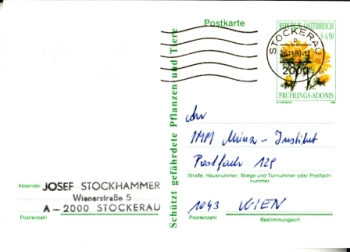 Postkarte
REPUBLIK ÖSTERREICH
S 4,50
STOCKERAU
2000
FRÜHLINGS-ADONIS
Schützt gefährdete Pflanzen und Tiere
An
Institut
Postfach 129
Straße, Hausnummer, Stiege und Türnummer oder Postfach-
nummer
Absender
JOSEF STOCKHAMMER
Wienerstraße 5
A - 2000 STOCKERAU
1043 WIEN
Postleitzahl
Postleitzahl
Bestimmungsort